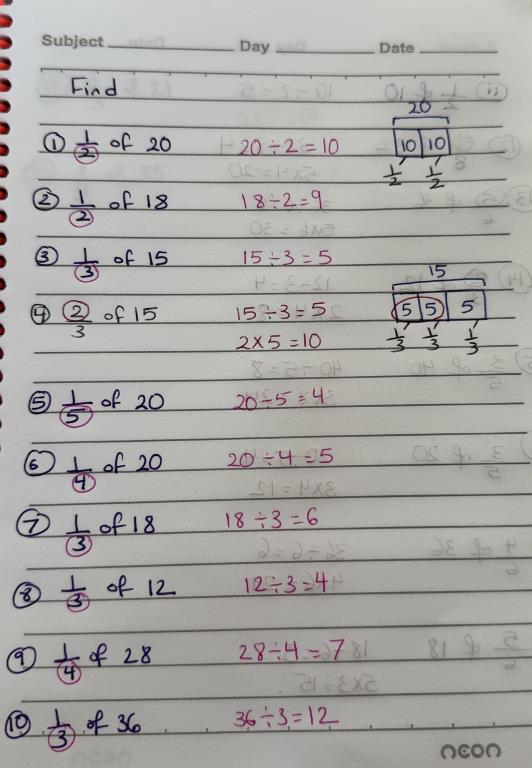 Subject Day Date
Find
20
① 1/2 of 20 20÷2=10 10 10
1/2 1/2
② 1/2 of 18 18÷2=9
③ 1/3 of 15 15÷3=5
15
④ 2/3 of 15 15÷3=5 5 5 5
2×5=10 1/3 1/3 1/3
⑤ 1/5 of 20 20÷5=4
⑥ 1/4 of 20 20÷4=5
⑦ 1/3 of 18 18÷3=6
⑧ 1/3 of 12 12÷3=4
⑨ 1/4 of 28 28÷4=7
⑩ 1/3 of 36 36÷3=12
neon